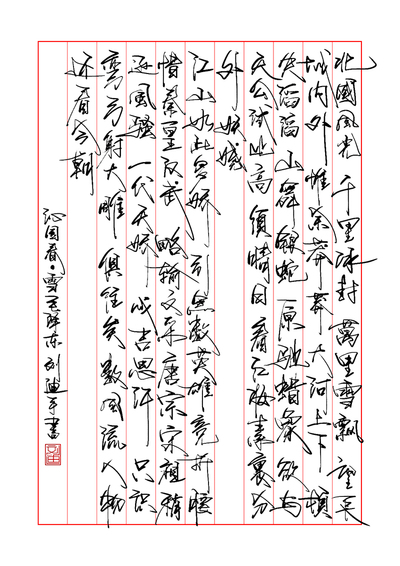 北國風光 千里冰封 萬里雪飄 望長
城内外 惟余莽莽 大河上下 頓
失滔滔 山舞銀蛇 原馳蜡象 欲与
天公試比高 須晴日 看红妝素裹 分
外妖嬈
江山如此多娇 引無數英雄竞折腰
惜秦皇汉武 略输文采 唐宗宋祖 稍
逊風騷 一代天娇 成吉思汗 只识
彎弓射大雕 俱往矣 數風流人物
还看今朝
沁园春·雪 毛泽东 刘迪書